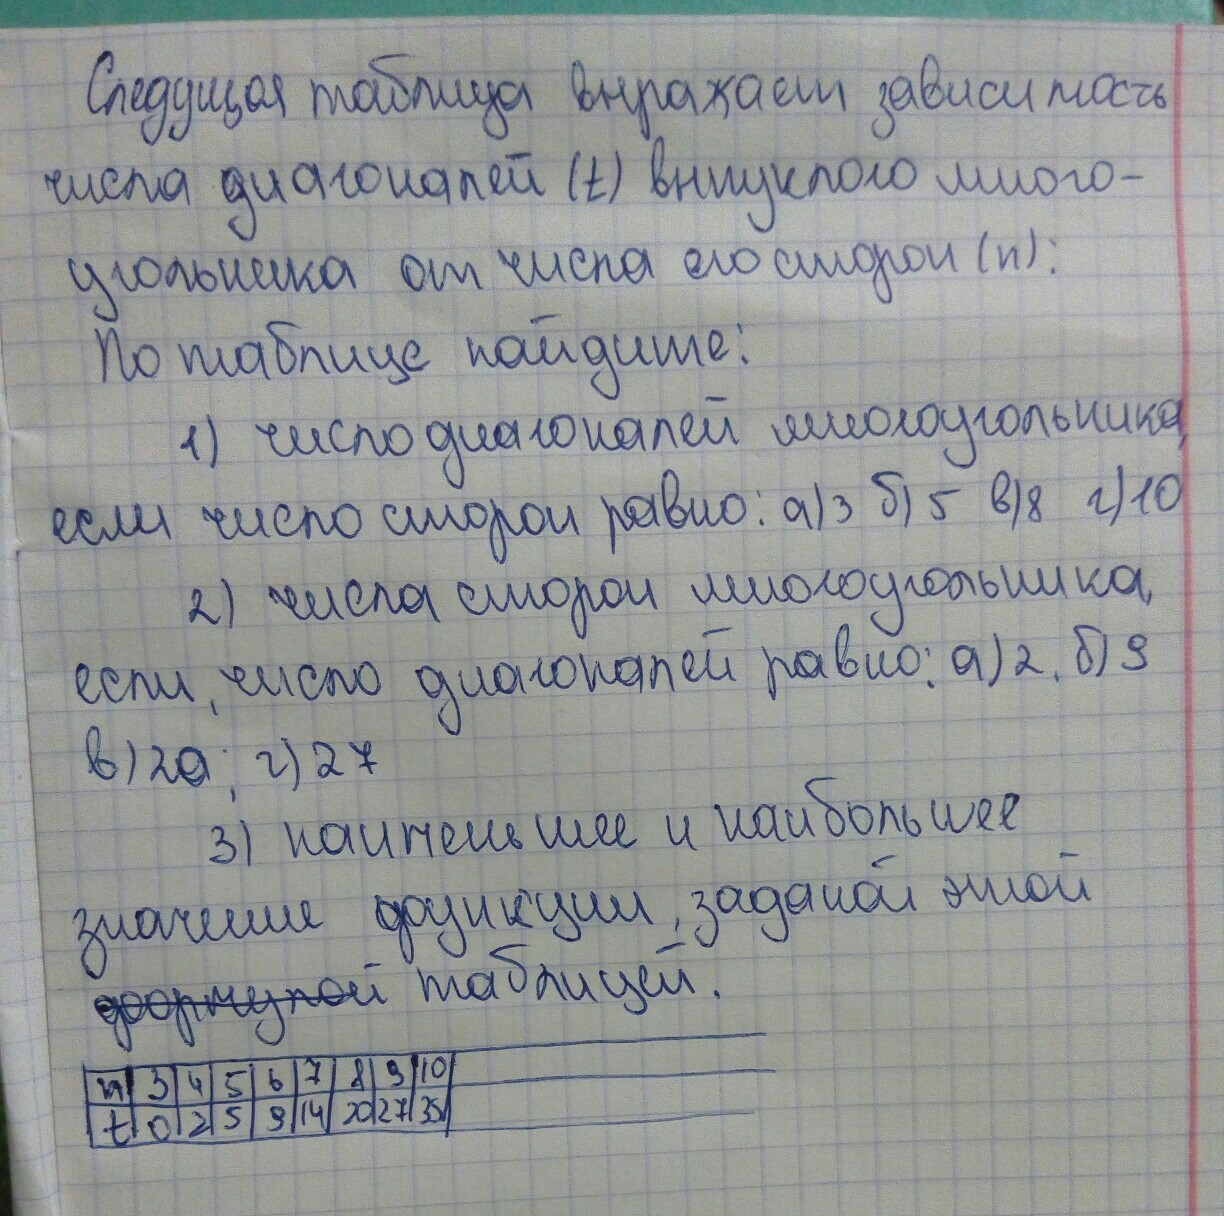 Следущая таблица выражает зависимость
числа диагоналей (t) выпуклого много-
угольника от числа его сторон (n):
По таблице найдите:
1) число диагоналей многоугольника,
если число сторон равно: а) 3 б) 5 в) 8 г) 10
2) числа сторон многоугольника,
если, число диагоналей равно: а) 2, б) 9
в) 20; г) 27
3) наименьшее и наибольшее
значение функции, заданой этой
формулой таблицей.
n 3 4 5 6 7 8 9 10
t 0 2 5 9 14 20 27 35